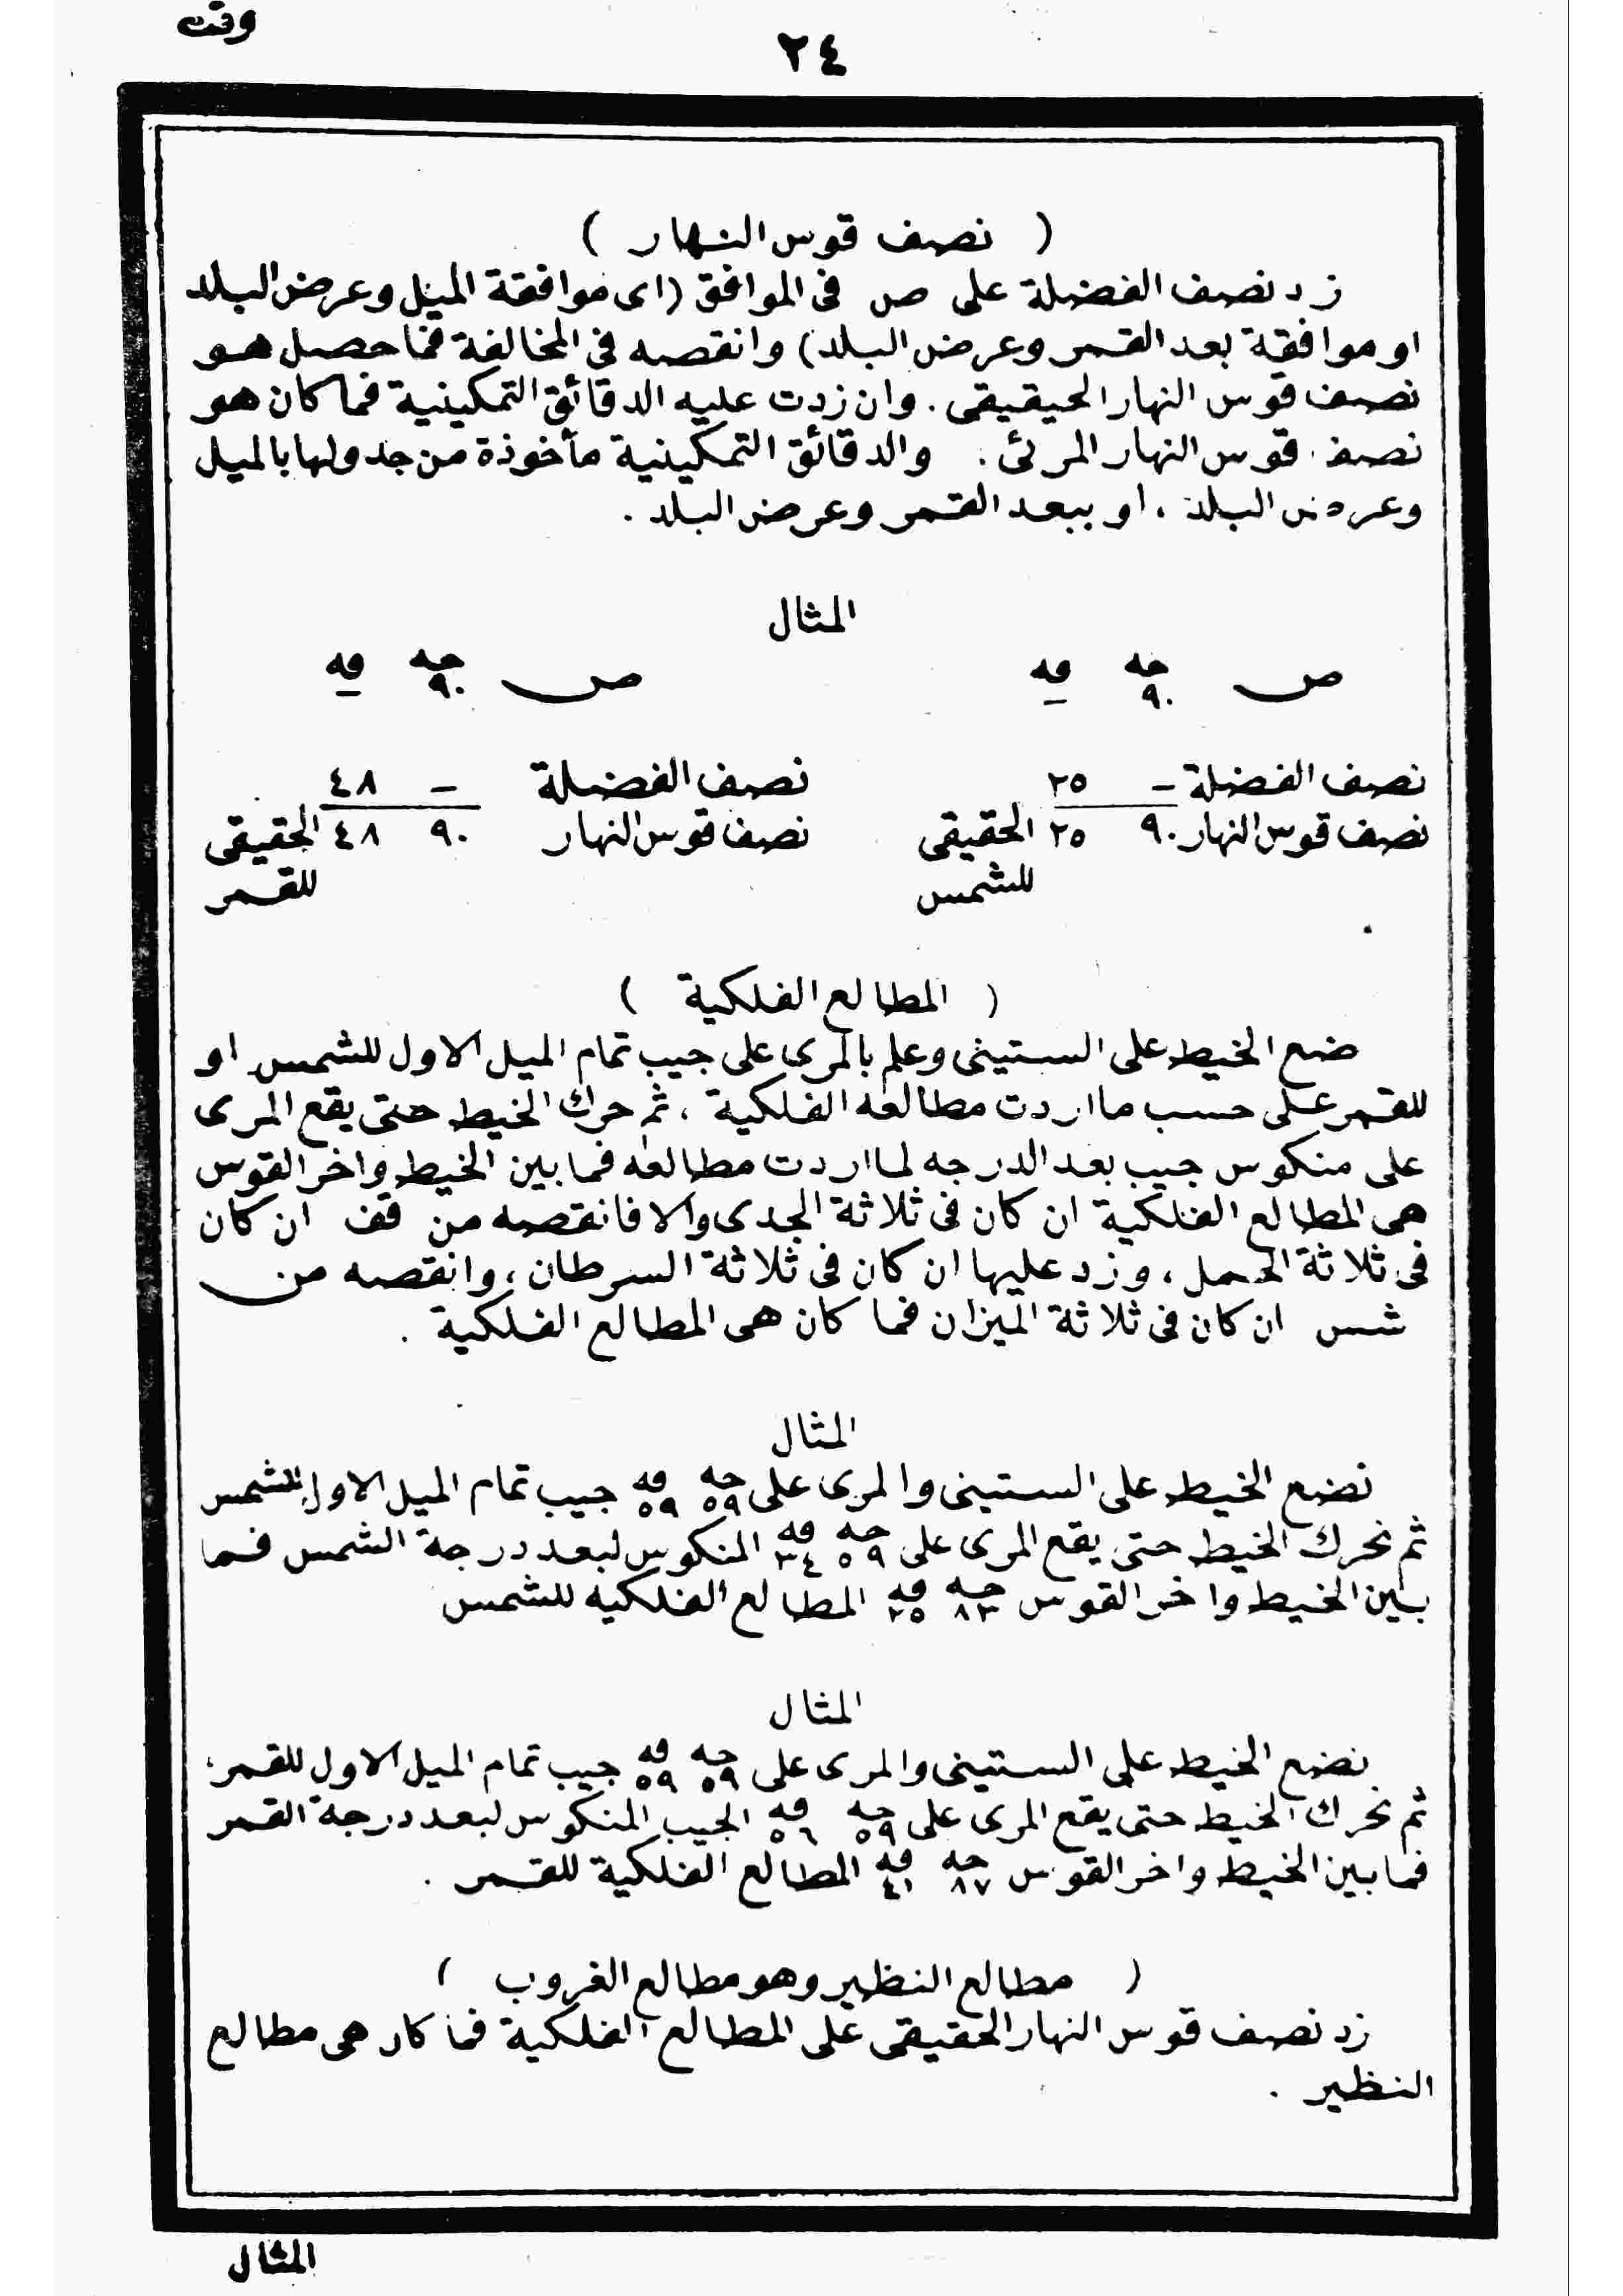 وقت
٢٤
( نصف قوس النهار )
زد نصف الفضلة على ص فى الموافق (اى موافقة الميل وعرض البلد
او موافقة بعد القمر وعرض البلد) وانقصه فى المخالفة فما حصل هو
نصف قوس النهار الحيقيقى . وان زدت عليه الدقائق التمكينية فما كان هو
نصف قوس النهار المرئى . والدقائق التمكينية مأخوذة من جدولها بالميل
وعرض البلد ، او ببعد القمر وعرض البلد .
المثال
ص جه ٩٠ قه –
ص جه ٩٠ قه –
نصف الفضلة – ٢٥
نصف الفضلة – ٤٨
نصف قوس النهار ٩٠ ٢٥ الحقيقى
للشمس
نصف قوس النهار ٩٠ ٤٨ الحقيقى
للقمر
( المطالع الفلكية )
ضع الخيط على الستينى وعلم بالمرى على جيب تمام الميل الاول للشمس او
للقمر على حسب ما اردت مطالعه الفلكية ، ثم حرك الخيط حتى يقع المرى
على منكوس جيب بعد الدرجه لما اردت مطالعه فما بين الخيط واخر القوس
هى المطالع الفلكية ان كان فى ثلاثة الجدى والا فانقصه من قف ان كان
فى ثلاثة الحمل ، وزد عليها ان كان فى ثلاثة السرطان ، وانقصه من
شس ان كان فى ثلاثة الميزان فما كان هى المطالع الفلكية .
المثال
نضع الخيط على الستينى والمرى على جه ٥٩ قه ٥٩ جيب تمام الميل الاول للشمس
ثم نحرك الخيط حتى يقع المرى على جه ٥٩ قه ٣٤ المنكوس لبعد درجة الشمس فما
بين الخيط واخر القوس جه ٨٣ قه ٢٥ المطالع الفلكيه للشمس
المثال
نضع الخيط على الستينى والمرى على جه ٥٩ قه ٥٩ جيب تمام الميل الاول للقمر
ثم نحرك الخيط حتى يقع المرى على جه ٥٩ قه ٥٦ الجيب المنكوس لبعد درجة القمر
فما بين الخيط واخر القوس جه ٨٧ قه ٤١ المطالع الفلكية للقمر .
( مطالع النظير وهو مطالع الغروب )
زد نصف قوس النهار الحقيقى على المطالع الفلكية فما كان هى مطالع
النظير .
المثال